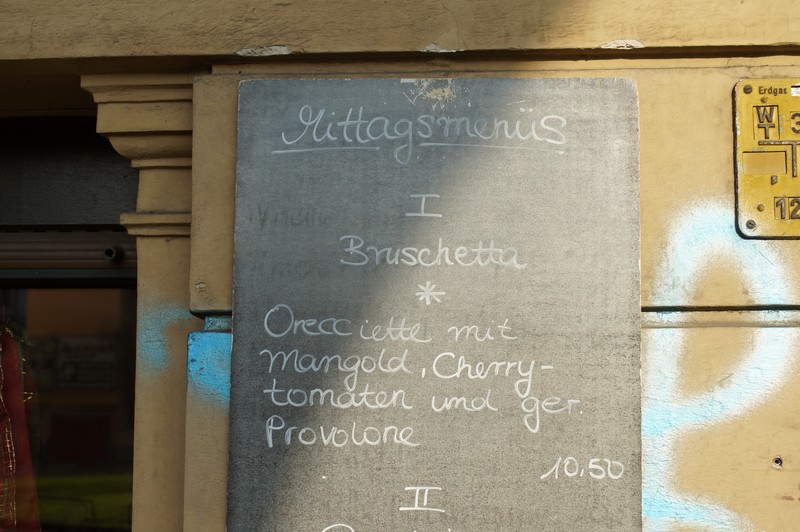 Mittagsmenüs
I
Bruschetta
*
Orecciette mit
Mangold, Cherry-
tomaten und ger.
Provolone
10.50
II
Erdgas
W
T
3
12